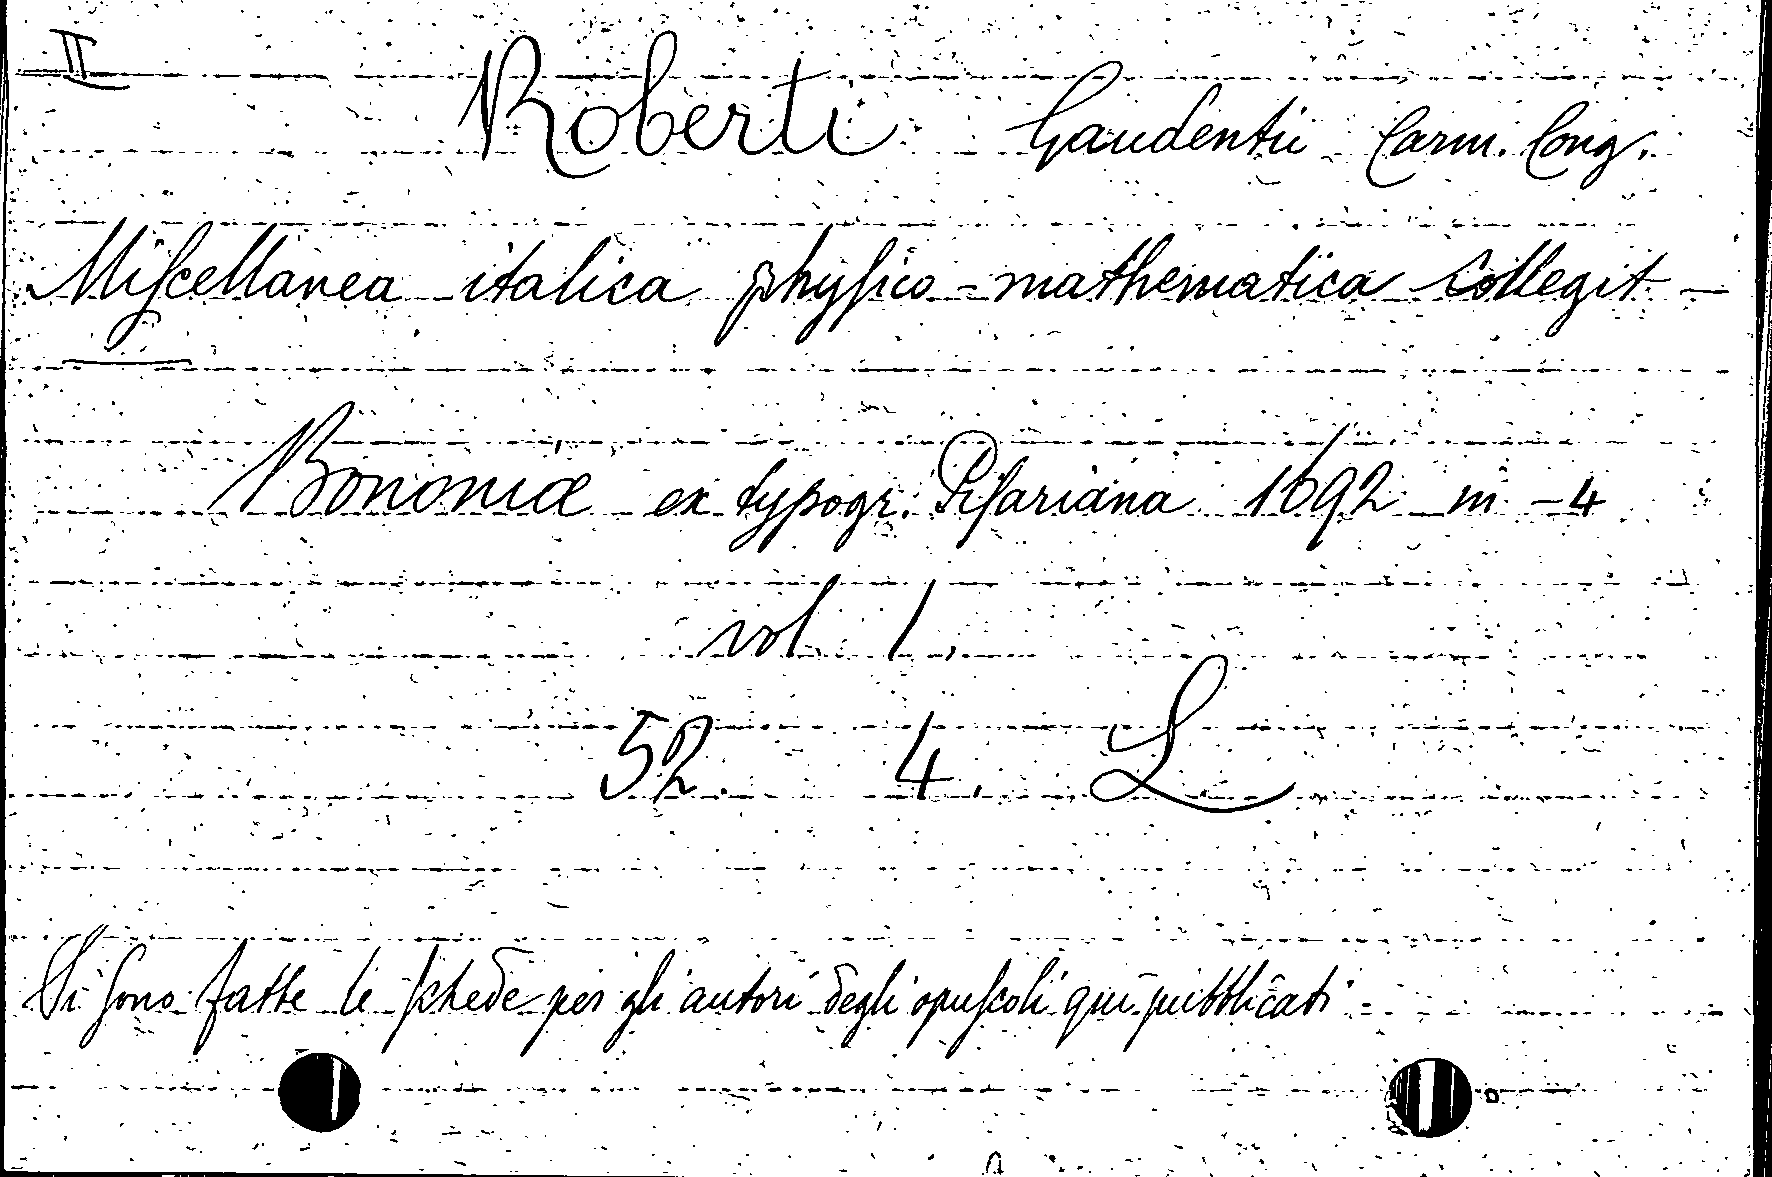 II
Roberti Gaudentii Carm. Cong.
Miſcellanea italica phyſico-mathematica collegit —
Bononiæ ex typogr. Piſariana 1692 in-4
vol. 1.
52. 4. L
Si ſono fatte le ſchede per gli autori degli opuſcoli qui pubblicati